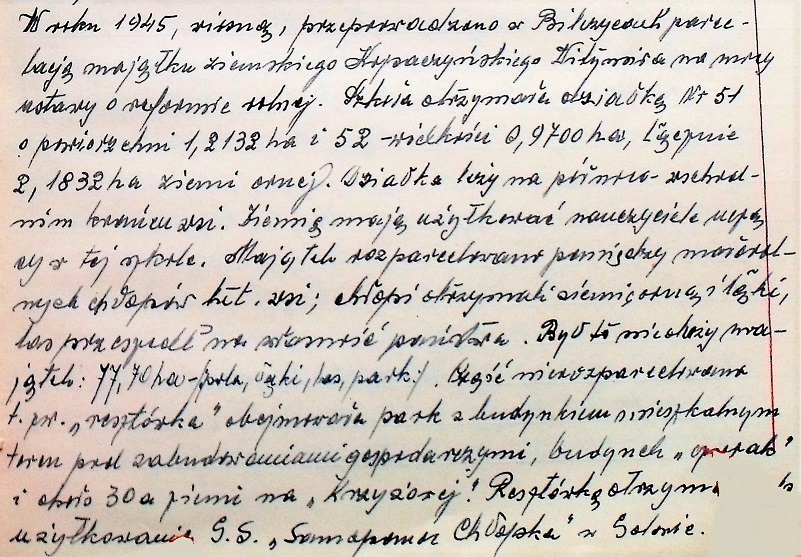 W roku 1945, wiosną, przeprowadzono w Bilczycach parce-
lację majątku ziemskiego Kopaczyńskiego Witymira na mocy
ustawy o reformie rolnej. Szkoła otrzymała działkę Nr 51
o powierzchni 1,2132 ha i 52 - wielkości 0,9700 ha, łącznie
2,1832 ha ziemi ornej. Działka leży na północ- wschod-
nim krańcu wsi. Ziemię mają użytkować nauczyciele uczą
cy w tej szkole. Majątek rozparcelowano pomiędzy małorol-
nych chłopów tut. wsi; chłopi otrzymali ziemię orną i łąki,
las przeszedł na własność państwa. Był to nieduży ma-
jątek: 77,70 ha - (pola, łąki, las, park). Część nierozparcelowana
t. zw. „resztówka" obejmowała park z budynkiem mieszkalnym
teren pod zabudowaniami gospodarczymi, budynek
i około 30 a ziemi na „Krzyżowej". Resztówkę
użytkowanie G.S. „Samopomoc Chłopska" w Gdowie.